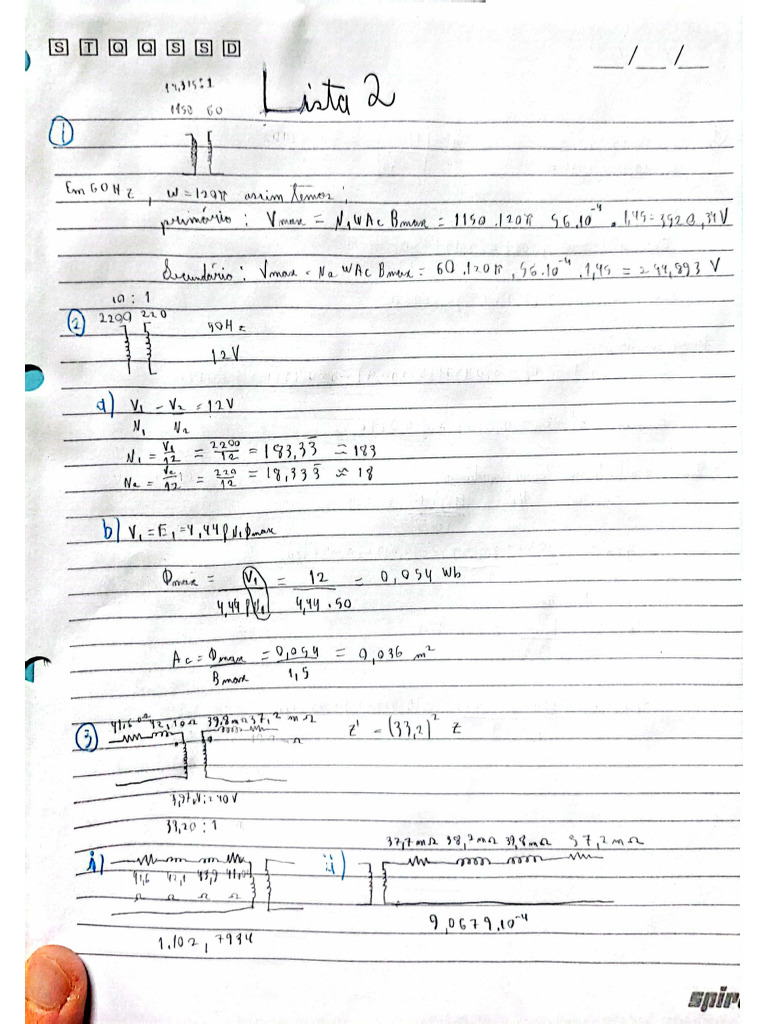 S T Q Q S S D
__/__/__
Lista 2
1150 60
1
Em 60Hz, w=120π assim temos:
primário: Vmax = N₁WAc Bmax = 1150.120π 56.10⁻⁴.1,45=3520,34V
Secundário: Vmax = N₂ WAc Bmax = 60.120π.56.10⁻⁴.1,45 = 244,893 V
10:1
2
2200 220 50Hz
12V
a) V₁/N₁ = V₂/N₂ = 12V
N₁ = V₁/12 = 2200/12 = 183,33 ≈ 183
N₂ = V₂/12 = 220/12 = 18,333 ≈ 18
b) V₁=E₁=4,44fN₁Φmax
Φmax = V₁/4,44fN₁ = 12/4,44.50 = 0,054 Wb
Ac = Φmax/Bmax = 0,054/1,5 = 0,036 m²
3
41,6Ω 42,10Ω 39,8mΩ 37,2mΩ
Z' = (33,2)² Z
33,20:1
i) ii) 37,7mΩ 38,2mΩ 39,8mΩ 37,2mΩ
41,6 42,1 43,9 41,0
Ω Ω Ω Ω
1.102,7934
9,0679.10⁻⁴
spir